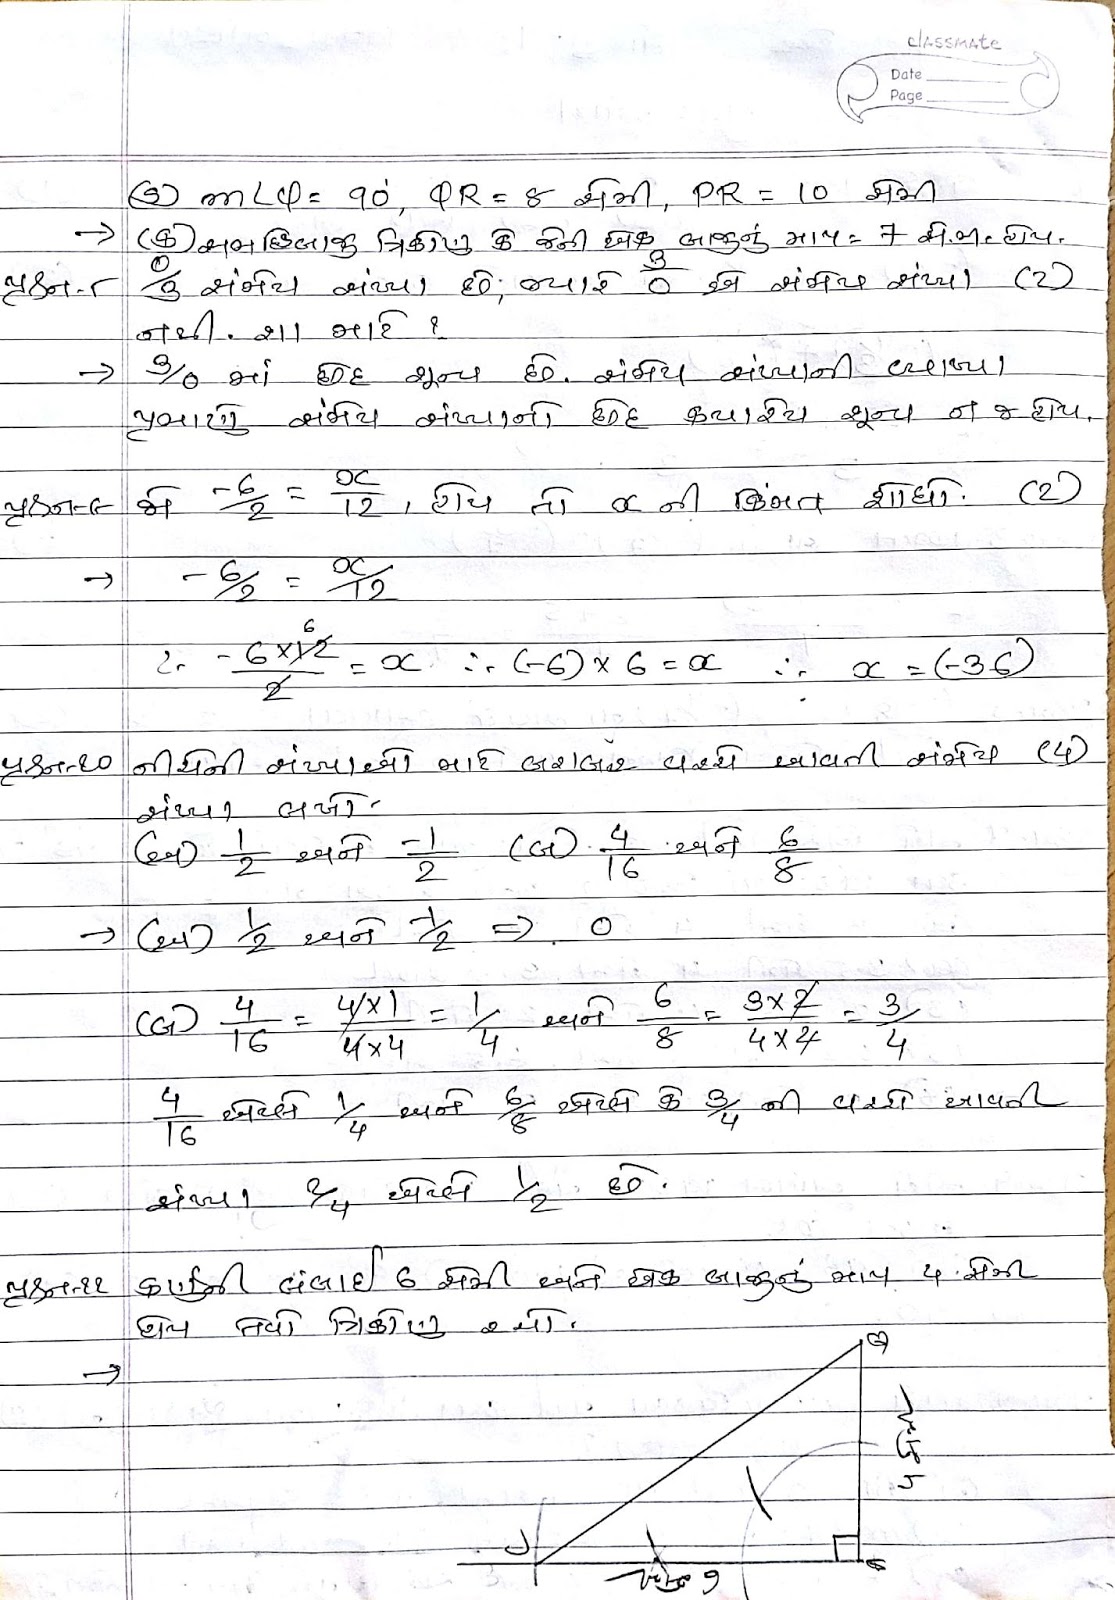 classmate
Date
Page
(૩) m∠Q = 90°, QR = 8 સેમી, PR = 10 સેમી
→ (ક) સમદ્વિબાજુ ત્રિકોણ કે જેની એક બાજુનું માપ = 7 સે.મી. હોય.
પ્રશ્ન-૮ 0/3 સંમેય સંખ્યા છે, જ્યારે 3/0 એ સંમેય સંખ્યા (2)
નથી. શા માટે ?
→ 3/0 માં છેદ શૂન્ય છે. સંમેય સંખ્યાની વ્યાખ્યા
પ્રમાણે સંમેય સંખ્યાનો છેદ ક્યારેય શૂન્ય ન જ હોય.
પ્રશ્ન-૯ જો -6/2 = x/12, હોય તો x ની કિંમત શોધો. (2)
→ -6/2 = x/12
∴ -6×12/2 = x ∴ (-6) × 6 = x ∴ x = (-36)
6
પ્રશ્ન-૧૦ નીચેની સંખ્યાઓ માટે બરાબર વચ્ચે આવતી સંમેય (4)
સંખ્યા લખો.
(અ) 1/2 અને -1/2 (બ) 4/16 અને 6/8
→ (અ) 1/2 અને -1/2 ⇒ 0
(બ) 4/16 = 4×1/4×4 = 1/4 અને 6/8 = 3×2/4×2 = 3/4
4/16 એટલે 1/4 અને 6/8 એટલે કે 3/4 ની વચ્ચે આવતી
સંખ્યા 2/4 એટલે 1/2 છે.
પ્રશ્ન-૧૧ કર્ણની લંબાઈ 6 સેમી અને એક બાજુનું માપ 4 સેમી
હોય તેવો ત્રિકોણ રચો.
→